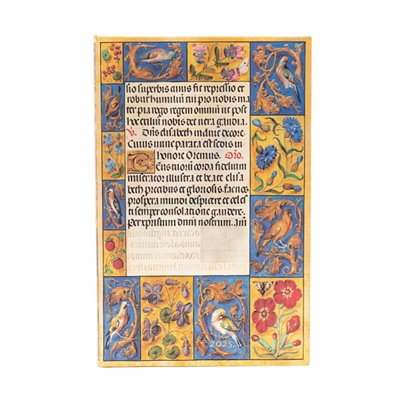 sio superbis eius fit repressio et
robur humiliū tui pro nobis ma
ter pia rogo regem omniū ut post
hec exiliū nobis det vera gaudia.
V. Dn̄s elisabeth induit decore
Cuius nunc parata est sedis in
honore Oremus. Oro.
tuorū corda fidelium
miserator illustra et beate elisa
beth precibus et gloriosis. fac nos
prospera mundi despicere et celes
ti semper consolatione gaudere.
Per cristum dnm nostrum. am
2025